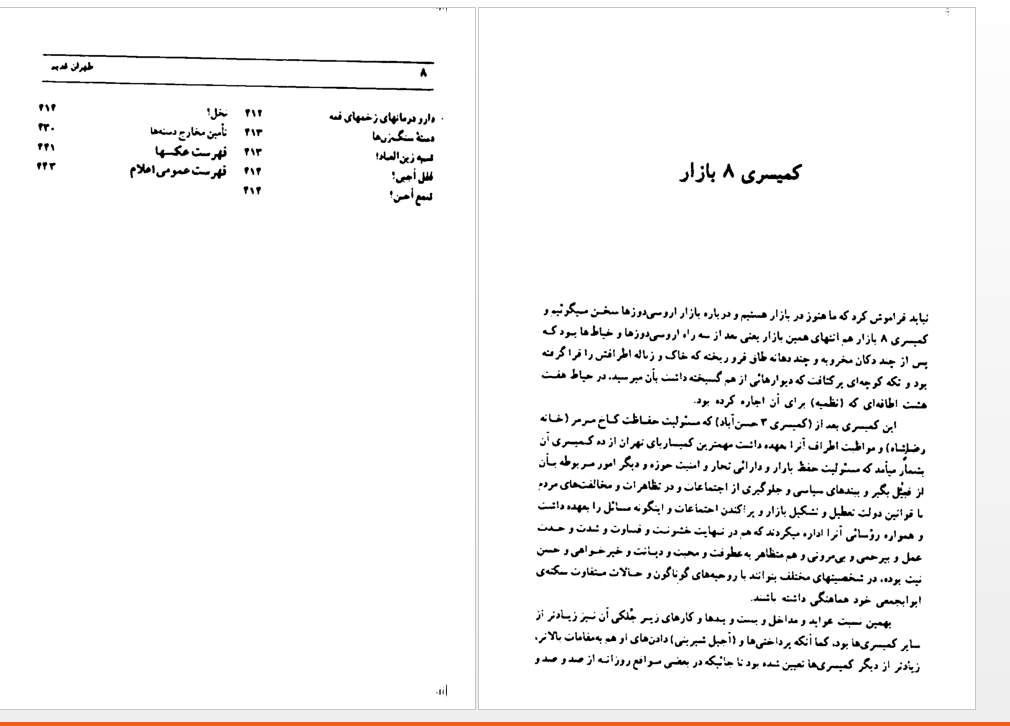 ۸
طهران قدیم
دارو درمانهای زخمهای قمه ۴۱۲
دستهٔ سنگ‌زن‌ها ۴۱۳
۴۱۳
قفل آجین؟ ۴۱۴
شمع آجین؟ ۴۱۴
نخل؟ ۴۱۴
تأمین مخارج دسته‌ها ۴۳۰
فهرست عکسها ۴۴۱
فهرست عمومی اعلام ۴۴۳
کمیسری ۸ بازار
نباید فراموش کرد که ما هنوز در بازار هستیم و درباره بازار اروسی‌دوزها سخن میگوئیم و
کمیسری ۸ بازار هم انتهای همین بازار یعنی بعد از سه راه اروسی‌دوزها و خیاط‌ها بود که
پس از چند دکان مخروبه و چند دهانه طاق فرو ریخته که خاک و زباله اطرافش را فرا گرفته
بود و تکه کوچه‌ای پرکثافت که دیوارهائی از هم گسیخته داشت بآن میرسید، در حیاط هفت
هشت اطاقه‌ای که (نظمیه) برای آن اجاره کرده بود.
این کمیسری بعد از (کمیسری ۳ حسن‌آباد) که مسئولیت حفاظت کاخ مرمر (خانه
رضاشاه) و مواظبت اطراف آنرا بعهده داشت مهمترین کمیساریای تهران از ده کمیسری آن
بشمار میآمد که مسئولیت حفظ بازار و دارائی تجار و امنیت حوزه و دیگر امور مربوطه بآن
از قبیل بگیر و ببندهای سیاسی و جلوگیری از اجتماعات و در تظاهرات و مخالفت‌های مردم
با قوانین دولت تعطیل و تشکیل بازار و پراکندن اجتماعات و اینگونه مسائل را بعهده داشت
و همواره رؤسائی آنرا اداره میکردند که هم در نهایت خشونت و قساوت و شدت و حدت
عمل و بیرحمی و بی‌مروتی و هم متظاهر به عطوفت و محبت و دیانت و خیرخواهی و حسن
نیت بوده، در شخصیتهای مختلف بتوانند با روحیه‌های گوناگون و حالات متفاوت سکنه‌ی
ابوابجمعی خود هماهنگی داشته باشند.
بهمین نسبت عواید و مداخل و بست و بندها و کارهای زیر جُلکی آن نیز زیادتر از
سایر کمیسری‌ها بود، کما آنکه پرداختی‌ها و (آجیل شیرینی) دادن‌های او هم به‌مقامات بالاتر،
زیادتر از دیگر کمیسری‌ها تعیین شده بود تا جائیکه در بعضی مواقع روزانه از صد و صد و